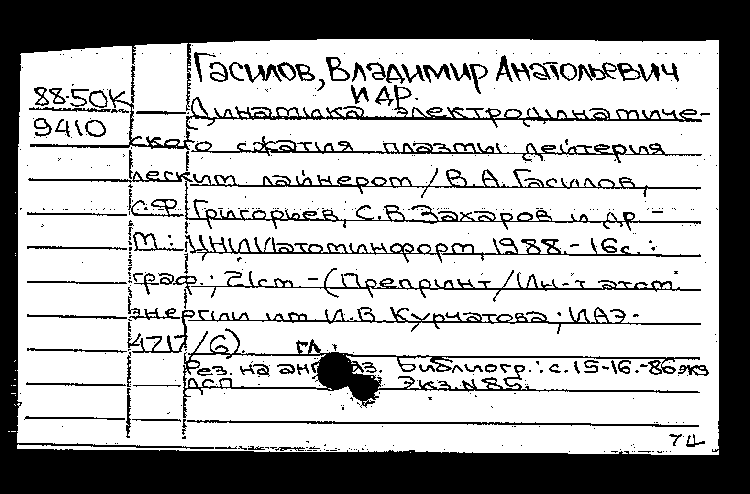 Гасилов, Владимир Анатольевич
и др.
88-50К
Динамика электродинамиче-
9410
ского сжатия плазмы дейтерия
леским лайнером / В.А. Гасилов,
С.Ф. Григорьев, С.В. Захаров и др -
М.: ЦНИИатоминформ, 1988.- 16с.:
граф.; 21см -(Препринт / Ин-т атом.
энергии им И.В. Курчатова; ИАЭ-
4717/6).
Рез. на англ яз. Библиогр.: с.15-16.-86экз
ДСП. Экз.N 85.
74